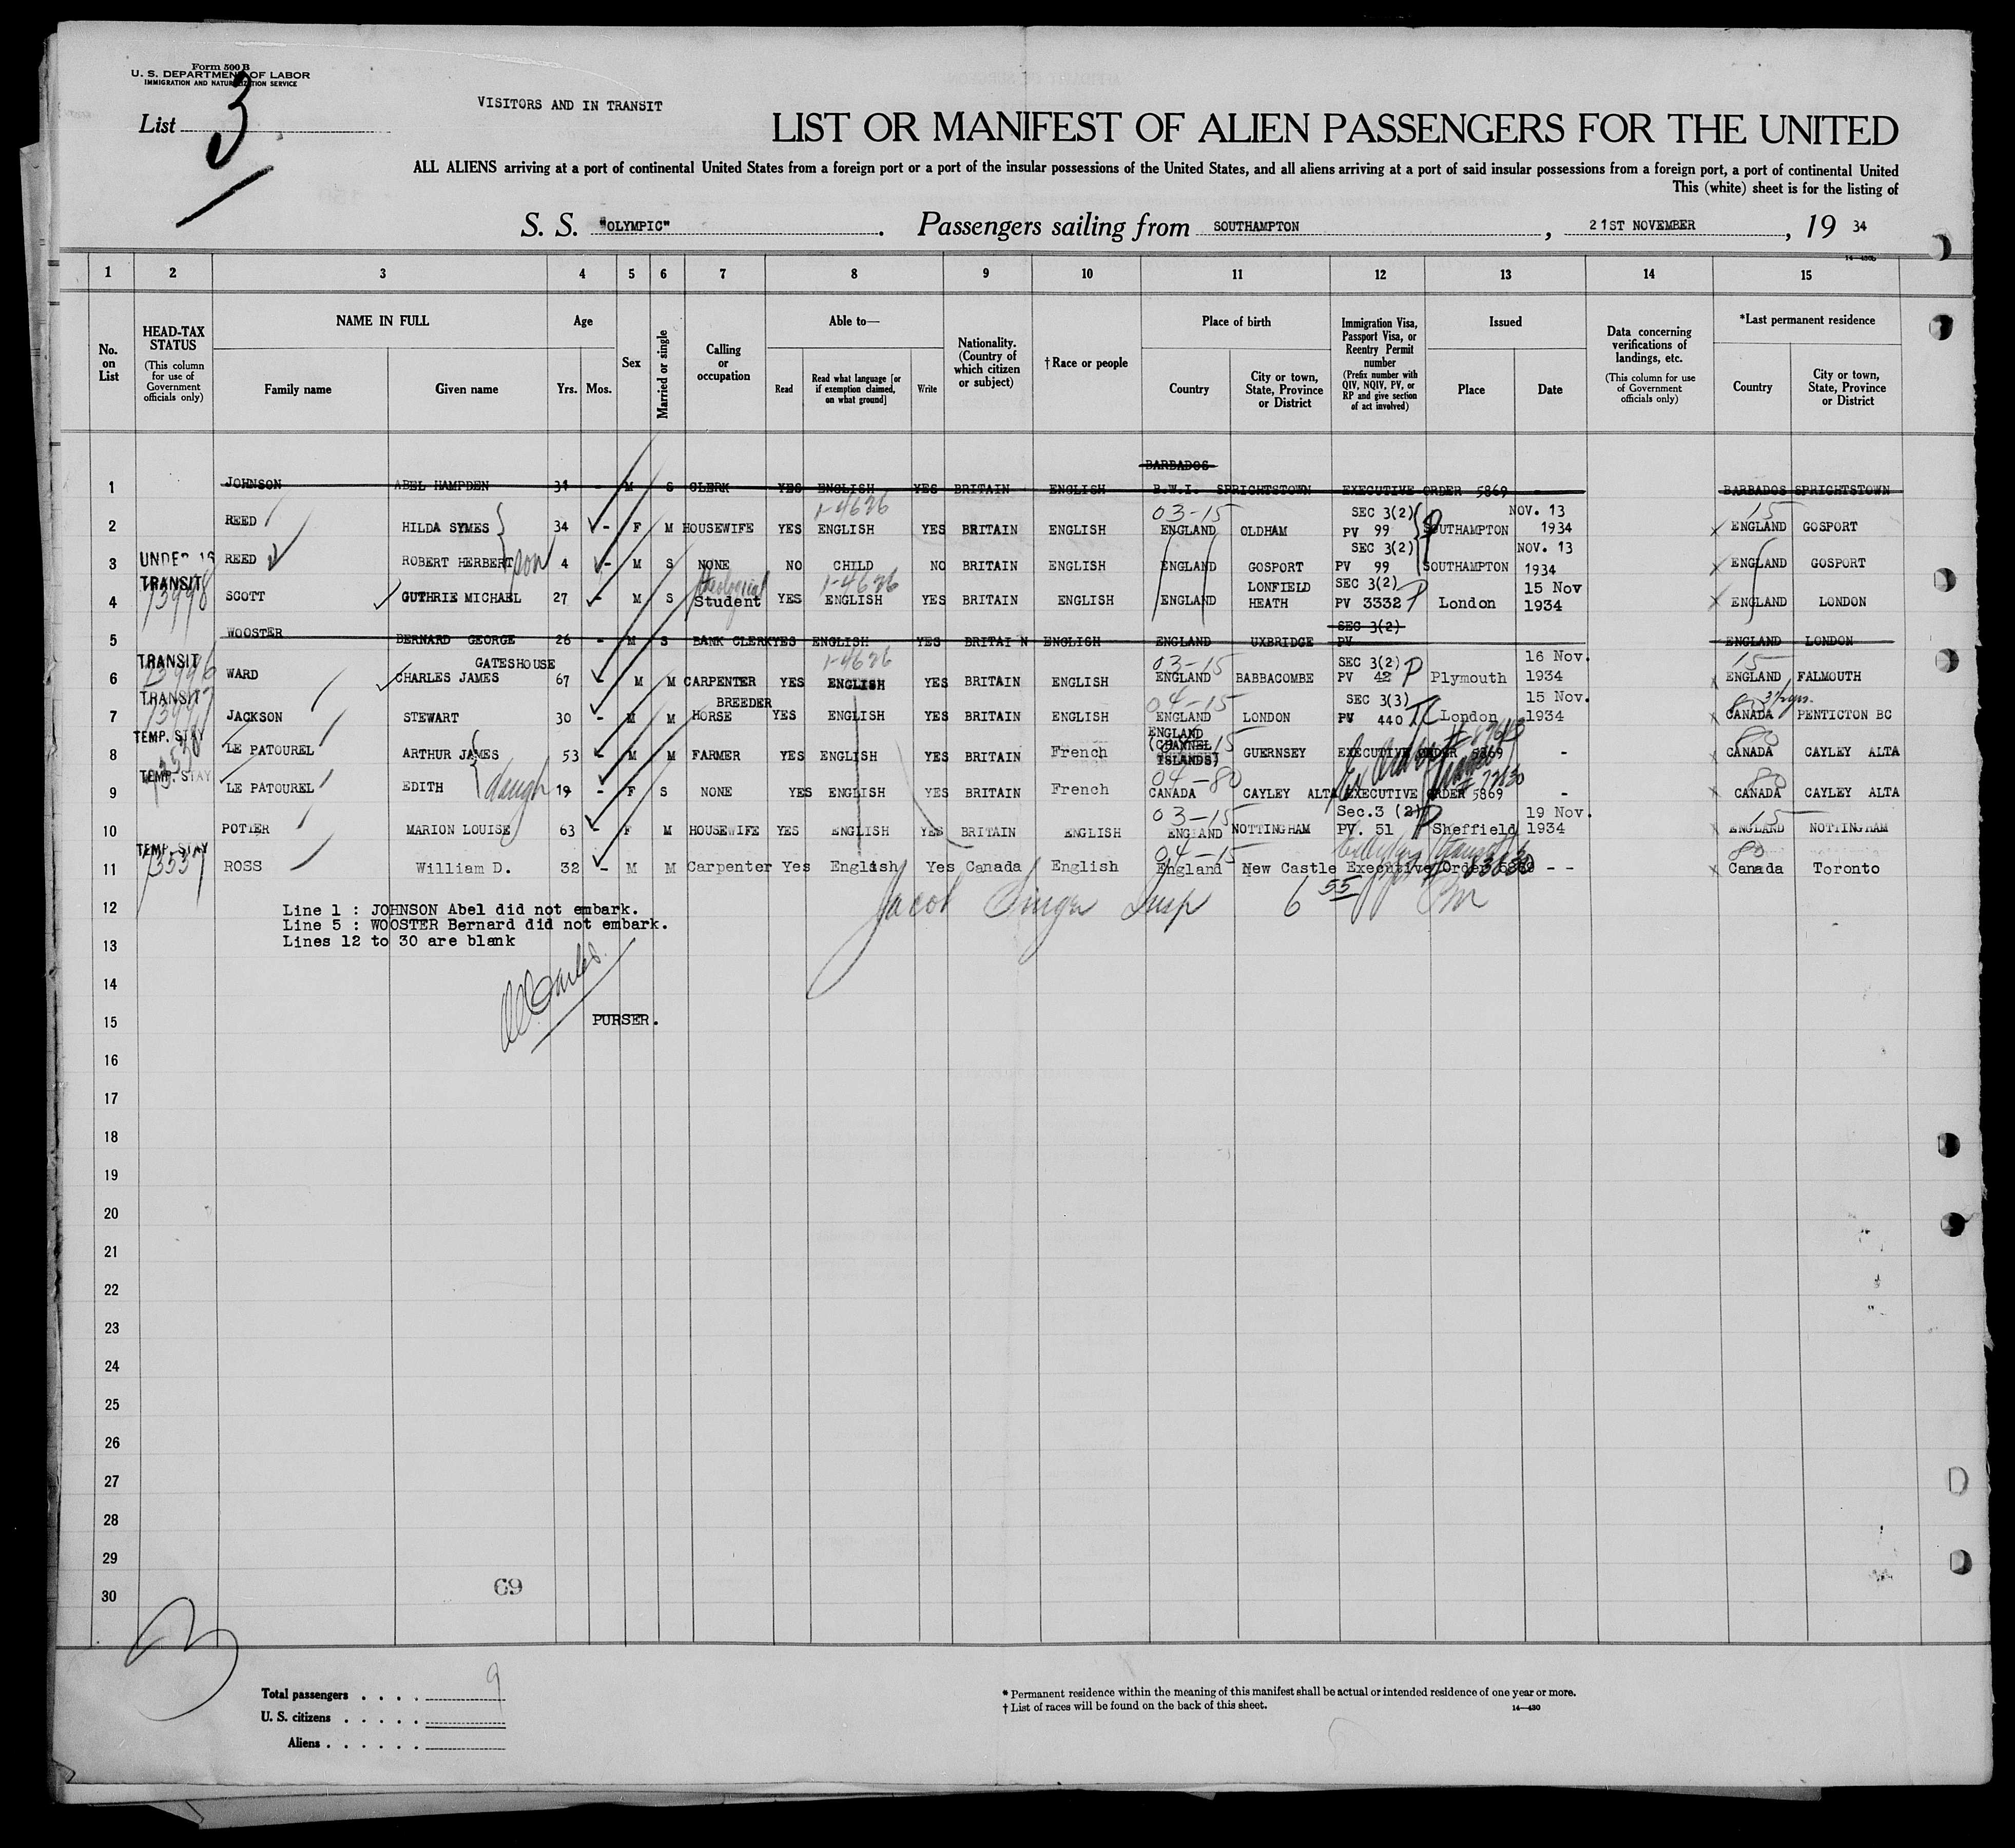 Form 500 B
U. S. DEPARTMENT OF LABOR
IMMIGRATION AND NATURALIZATION SERVICE
List 3
VISITORS AND IN TRANSIT
LIST OR MANIFEST OF ALIEN PASSENGERS FOR THE UNITED
ALL ALIENS arriving at a port of continental United States from a foreign port or a port of the insular possessions of the United States, and all aliens arriving at a port of said insular possessions from a foreign port, a port of continental United
This (white) sheet is for the listing of
S. S. "OLYMPIC". Passengers sailing from SOUTHAMPTON, 21ST NOVEMBER, 19 34
14—430b
1 2 3 4 5 6 7 8 9 10 11 12 13 14 15
No. on List
HEAD-TAX STATUS
(This column for use of Government officials only)
NAME IN FULL
Family name Given name
Age
Yrs. Mos.
Sex
Married or single
Calling or occupation
Able to—
Read Read what language [or if exemption claimed, on what ground] Write
Nationality. (Country of which citizen or subject)
† Race or people
Place of birth
Country City or town, State, Province or District
Immigration Visa, Passport Visa, or Reentry Permit number
(Prefix number with QIV, NQIV, PV, or RP and give section of act involved)
Issued
Place Date
Data concerning verifications of landings, etc.
(This column for use of Government officials only)
*Last permanent residence
Country City or town, State, Province or District
BARBADOS
1 JOHNSON ABEL HAMPDEN 31 - M S CLERK YES ENGLISH YES BRITAIN ENGLISH B.W.I. SPRICHTSTOWN EXECUTIVE ORDER 5869 BARBADOS SPRICHTSTOWN
1-4626 03-15 SEC 3(2) NOV. 13 15
2 REED HILDA SYMES 34 - F M HOUSEWIFE YES ENGLISH YES BRITAIN ENGLISH ENGLAND OLDHAM PV 99 SOUTHAMPTON 1934 ENGLAND GOSPORT
SEC 3(2) NOV. 13
3 UNDER 16 REED ROBERT HERBERT son 4 - M S NONE NO CHILD NO BRITAIN ENGLISH ENGLAND GOSPORT PV 99 SOUTHAMPTON 1934 ENGLAND GOSPORT
TRANSIT theological 1-4626 LONFIELD SEC 3(2) P 15 Nov
4 13998 SCOTT GUTHRIE MICHAEL 27 - M S Student YES ENGLISH YES BRITAIN ENGLISH ENGLAND HEATH PV 3332 London 1934 ENGLAND LONDON
SEC 3(2)
5 WOOSTER BERNARD GEORGE 26 - M S BANK CLERK YES ENGLISH YES BRITAIN ENGLISH ENGLAND UXBRIDGE PV ENGLAND LONDON
TRANSIT GATESHOUSE 1-4626 03-15 SEC 3(2) P 16 Nov. 15
6 13996 WARD CHARLES JAMES 67 M M CARPENTER YES ENGLISH YES BRITAIN ENGLISH ENGLAND BABBACOMBE PV 42 Plymouth 1934 ENGLAND FALMOUTH
TRANSIT BREEDER 04-15 SEC 3(3) 15 Nov.
7 13997 JACKSON STEWART 30 - M M HORSE YES ENGLISH YES BRITAIN ENGLISH ENGLAND LONDON PV 440 London 1934 CANADA PENTICTON BC
TEMP. STAY ENGLAND (CHANNEL ISLANDS) 80
8 LE PATOUREL ARTHUR JAMES 53 - M M FARMER YES ENGLISH YES BRITAIN French GUERNSEY EXECUTIVE ORDER 5869 - CANADA CAYLEY ALTA
TEMP. STAY 04-80 80
9 LE PATOUREL EDITH daugh 19 - F S NONE YES ENGLISH YES BRITAIN French CANADA CAYLEY ALTA EXECUTIVE ORDER 5869 - CANADA CAYLEY ALTA
03-15 Sec.3 (2) P 19 Nov. 15
10 POTTER MARION LOUISE 63 - F M HOUSEWIFE YES ENGLISH YES BRITAIN ENGLISH ENGLAND NOTTINGHAM PV. 51 Sheffield 1934 ENGLAND NOTTINGHAM
TEMP. STAY 04-15 80
11 ROSS William D. 32 - M M Carpenter Yes English Yes Canada English England New Castle Executive Order 5869 - - Canada Toronto
Jacob Singer Insp 6 55 PM
12 Line 1 : JOHNSON Abel did not embark.
Line 5 : WOOSTER Bernard did not embark.
13 Lines 12 to 30 are blank
14
15 PURSER.
16
17
18
19
20
21
22
23
24
25
26
27
28
29
30
69
Total passengers . . . . 9
U. S. citizens . . . . .
Aliens . . . . . .
* Permanent residence within the meaning of this manifest shall be actual or intended residence of one year or more.
† List of races will be found on the back of this sheet.
14—430